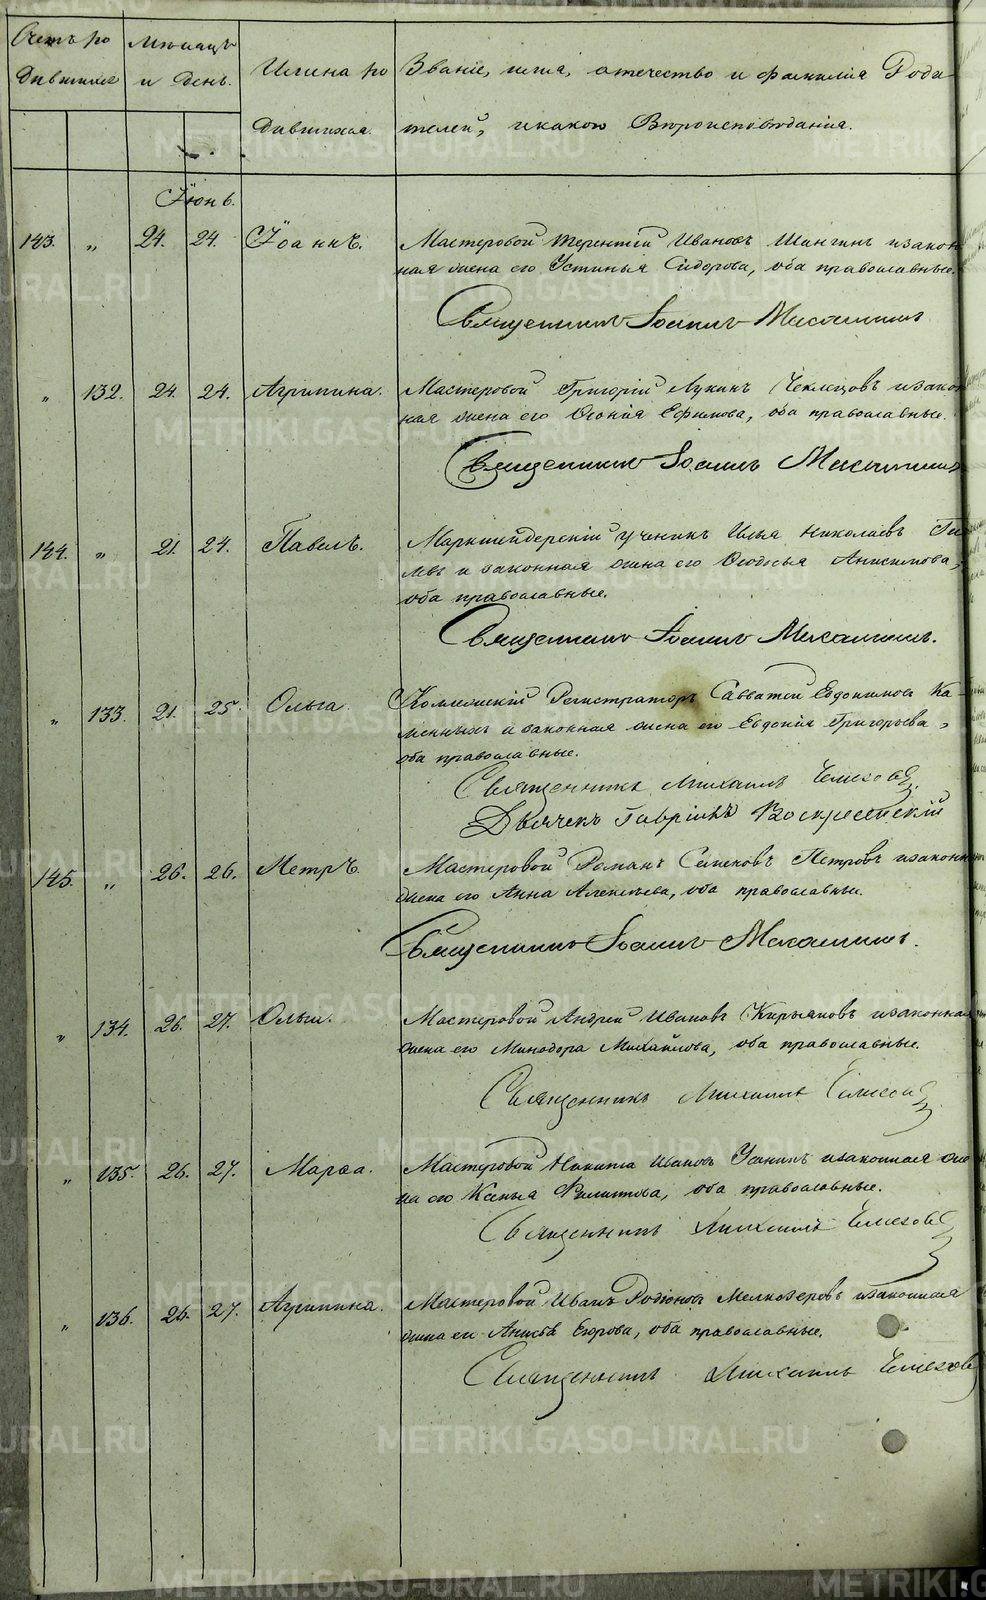 Счетъ ро
дившихся
Мѣсяцъ
и день.
Имена ро
дившихся.
Званіе, имя, отечество и фамилія Роди
телей, и какого Вѣроисповѣданія.
Іюнь.
143. " 24. 24. Іоаннъ. Мастеровой Терентій Ивановъ Шингинъ и закон
ная жена его Устинья Сидорова, оба православные.
Священникъ Іоаннъ
" 132. 24. 24. Агрипина. Мастеровой Григорій Лукинъ Чеклецовъ и закон
ная жена его Ѳеонія Ефимова, оба православные.
Священникъ Іоаннъ
144. " 21. 24. Павелъ. Маркшейдерскій ученикъ Илья Николаевъ
и законная жена его Ѳеодосья Анисимова,
оба православные.
Священникъ Іоаннъ
" 133. 21. 25. Ольга. Коллежскій Регистраторъ Савватій Евдокимовъ Ка-
менныхъ и законная жена его Евдокія Григорьева,
оба православные.
Священникъ Михаилъ
Дьячекъ Гавріилъ Воскресенскій
145. " 26. 26. Петръ. Мастеровой Романъ Семеновъ Петровъ и законн
жена его Анна Алексѣева, оба православные.
Священникъ Іоаннъ
" 134. 26. 27. Ольга. Мастеровой Андрей Ивановъ Кирьяновъ и законная
жена его Минодора Михайлова, оба православные.
Священникъ Михаилъ
" 135. 26. 27. Марѳа. Мастеровой Никита Ивановъ Усанинъ и законная же
на его Ксенья Филиппова, оба православные.
Священникъ Михаилъ
" 136. 26. 27. Агрипина. Мастеровой Иванъ Родіоновъ Мелкозеровъ и законная
жена его Анисья Егорова, оба православные.
Священникъ Михаилъ
METRIKI.GASO-URAL.RU